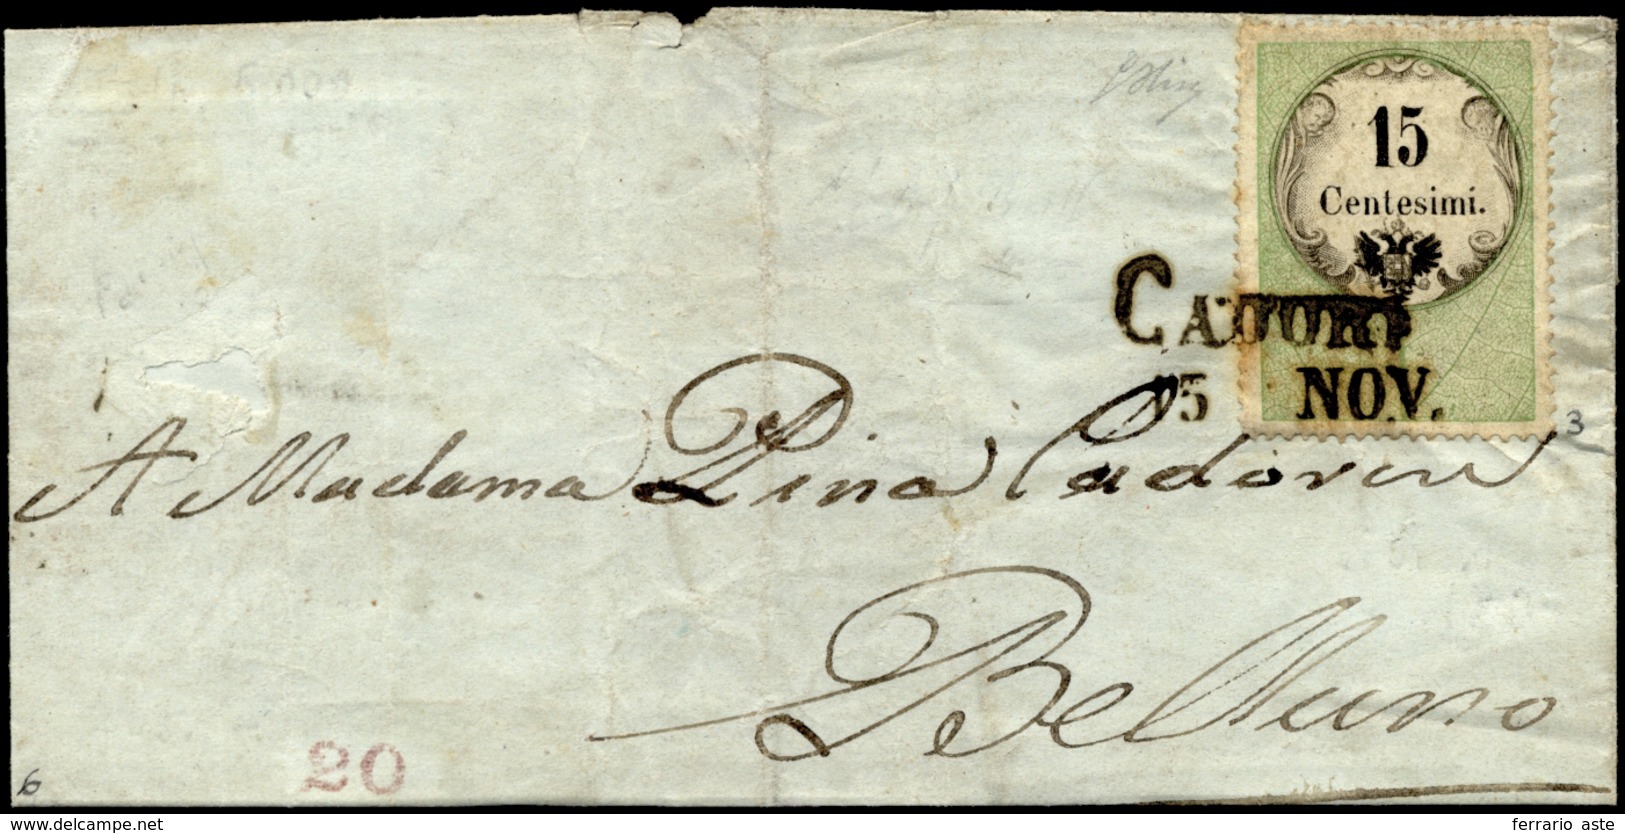 15
Centesimi.
CADORE
15 NOV.
3
A Madama Pina Cadorin
Belluno
20
6
www.delcampe.net
ferrario aste